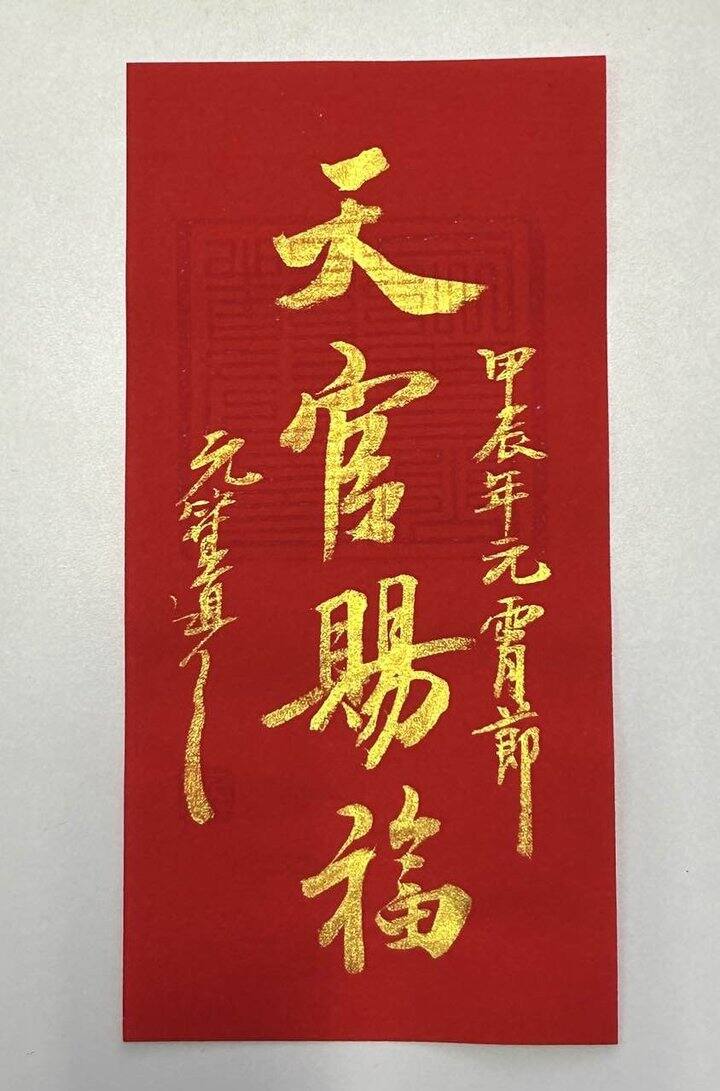 甲辰年元宵節
天官賜福
元
道人